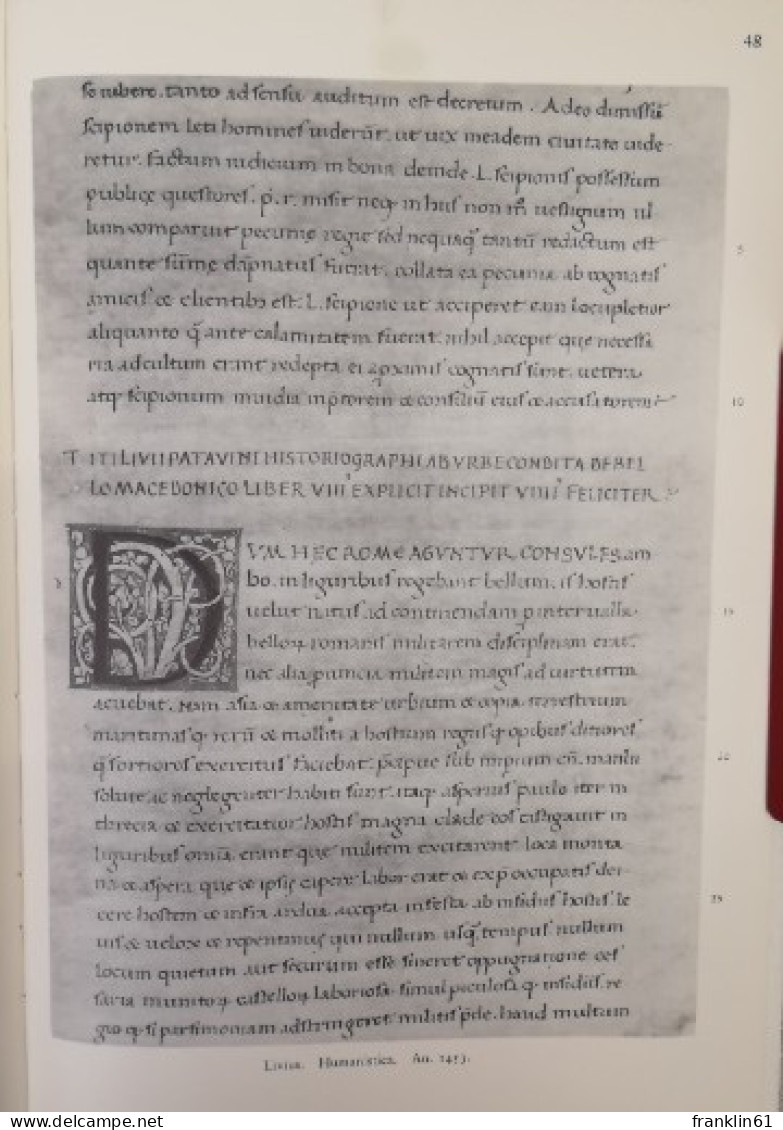 48
se iubere. tanto ad sensu auditum est decretum. Adeo dimissū
scipionem leti homines uiderūt. ut uix in eadem ciuitate uide-
retur. factum iudicium in bona deinde. L. scipionis possessum
publice questores. p. r. misit neq; in his non m̄ uestigium ul
lum comparuit pecunię regie sed nequaq̃ tantū redactum est
5
quante sūmę dāpnatus fuerat. collata ea pecunia ab cognatis
amicis & clientibȝ est. L. scipione ut acciperet eam locupletior
aliquanto q̃ ante calamitatem fuerat nihil accepit que necessa
ria ad cultum erant redepta ei a ꝓximis cognatis sunt. uetera
atq; scipionum inuidia in p̄torem & consiliū eius & accusatorem
10
TITI LIVII PATAVINI HISTORIOGRAPHI AB VRBE CONDITA DE BEL
LO MACEDONICO LIBER VIII EXPLICIT INCIPIT VIIII FELICITER
DVM HEC ROME AGVNTVR CONSVLES am
bo. in liguribus regebant bellum. is hostis
uelut natus ad continendam p̱ interualla
15
belloꝝ romanis militarem disciplinam erat.
nec alia ꝓuincia militem magis ad uirtutem
acuebat. Nam asia & amenitate urbium & copia terrestrium
maritimasq; rerū & mollitia hostium regiisq; opibus ditiores
q̃ fortiores exercitus faciebat. p̄cipue sub imperium cn̄. manlii
20
solute ac neglegenter habiti sunt. itaq; asperius paulo iter in
threcia & exercitatior hostis magna clade eos castigauit in
liguribus omīa erant que militem excitarent loca monta
na & aspera que & ipsis capere labor erat & ex p̄occupatis dei-
cere hostem & itinera ardua. accepta infesta ab insidiis hostis le
25
uis & uelox & repentinus qui nullum usq̃ tempus nullum
locum quietum aut securum esse sineret oppugnatione ces
saria munitoꝝ castelloꝝ laboriosa. simul piculosaq; insidiis. re
gioq; si parsimoniam adstringeret milites p̄de. haud multum
Livius. Humanistica. An. 1453.
franklin61